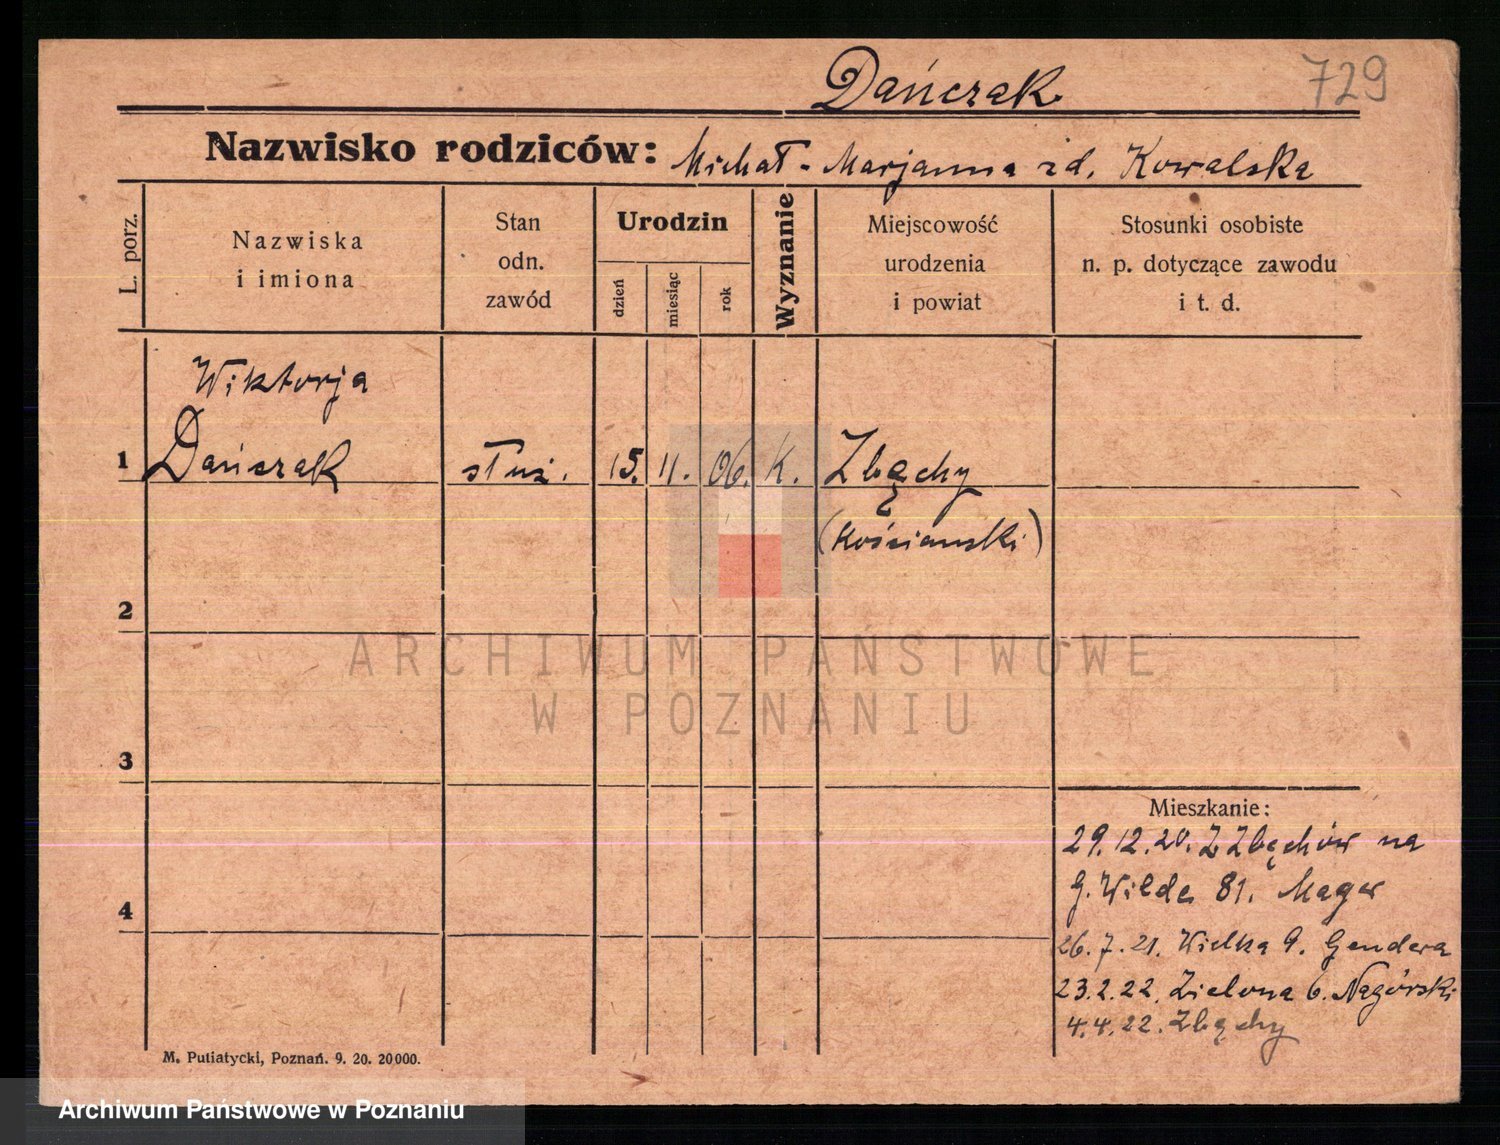 Dańczak 729
Nazwisko rodziców: Michał - Marjanna zd. Kowalska
L. porz.
Nazwiska
i imiona
Stan
odn.
zawód
Urodzin
dzień
miesiąc
rok
Wyznanie
Miejscowość
urodzenia
i powiat
Stosunki osobiste
n. p. dotyczące zawodu
i t. d.
Wiktorja
1 Dańczak służ. 15. 11. 06. K. Zbęchy
(Kościański)
2
ARCHIWUM PAŃSTWOWE
W POZNANIU
3
Mieszkanie:
29.12.20. Z Zbęchów na
G. Wilde 81.
4
26.7.21. Wielka 9. Gendera
23.2.22. Zielona 6. Nagórski
4.4.22. Zbęchy
M. Putiatycki, Poznań. 9. 20. 20000.
Archiwum Państwowe w Poznaniu